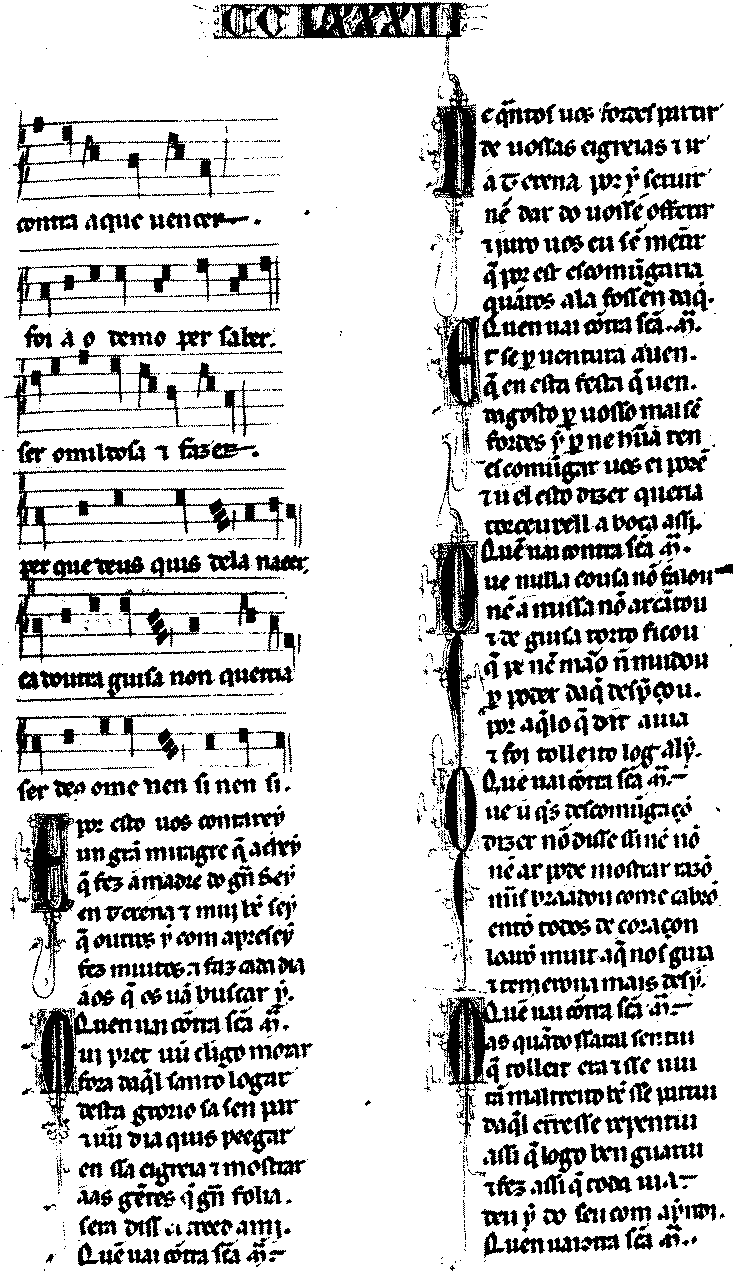 CCLXXXIII
contra aque uencer
foi a o demo per saber.
ser omildosa ⁊ fazer
per que deus quis dela nacer.
ca doutra guisa non querria
ser deo ome nen si nen si.
E por esto uos contarey
un grã miragre q̃ achey
q̃ fez a madre do grã Rey
en terena ⁊ mui bẽ sey
q̃ outros ẏ com apresey
fez muitos ⁊ faz cada dia
aos q̃ os uã buscar ẏ.
Quen uai cõtra scã m̃.
M ui pret uũ cligo morar
fora daq̃l santo logar
desta groriosa sen par
⁊ uũ dia quis preegar
en ssa eigreia ⁊ mostrar
aas gẽtes q̃ grã folia.
seria diss
Quẽ uai cõtra scã m̃.
D e q̃ntos uos fordes partir
de uossas eigreias ⁊ ir
a terena por ẏ seruir
nẽ dar do uoss̃e offerir
⁊ iuro uos eu sẽ mẽtir
q̃ por est escomũgaria
quãtos ala fossẽn daq̃.
Quen uai cõtra scã m̃.
E t se p̱ uentura auen.
q̃ en esta festa q̃ uen.
dagosto p̱ uosso mal sẽ
fordes ẏ p̱ nehũa ren
escomũgar uos ei porẽ
⁊ u el esto dizer queria
torceusell a boca assi.
Quẽ uai contra scã m̃.
Q ue nulla cousa nõ falou
nẽ a missa nõ arcãcou
⁊ de guisa torto ficou
q̃ pe nẽ mão ñ mudou
p̱ poder daq̃ despr̃çou.
por aq̃lo q̃ dit auia
⁊ foi tolleito log alẏ.
Quẽ uai cõtra scã m̃.
Q ue u q̃s descomũgaçõ
dizer nõ disse ssinẽ nõ
nẽ ar pode mostrar razõ
mais braadou come cabrõ
entõ todos de coraçon
louuarõ muit aq̃ nos guia
⁊ temerona mais desẏ.
Quẽ uai cõtra scã m̃.
M as quãdo ssatal sentiu
q̃ tolleit era ⁊ sse uiu
tã maltreito bẽ sse partiu
daq̃l erre sse repentiu
assi q̃ logo ben guariu
⁊ fez assi q̃ toda uia
deu ẏ do seu com apr̃ndi.
Quen uai cõtra scã m̃.